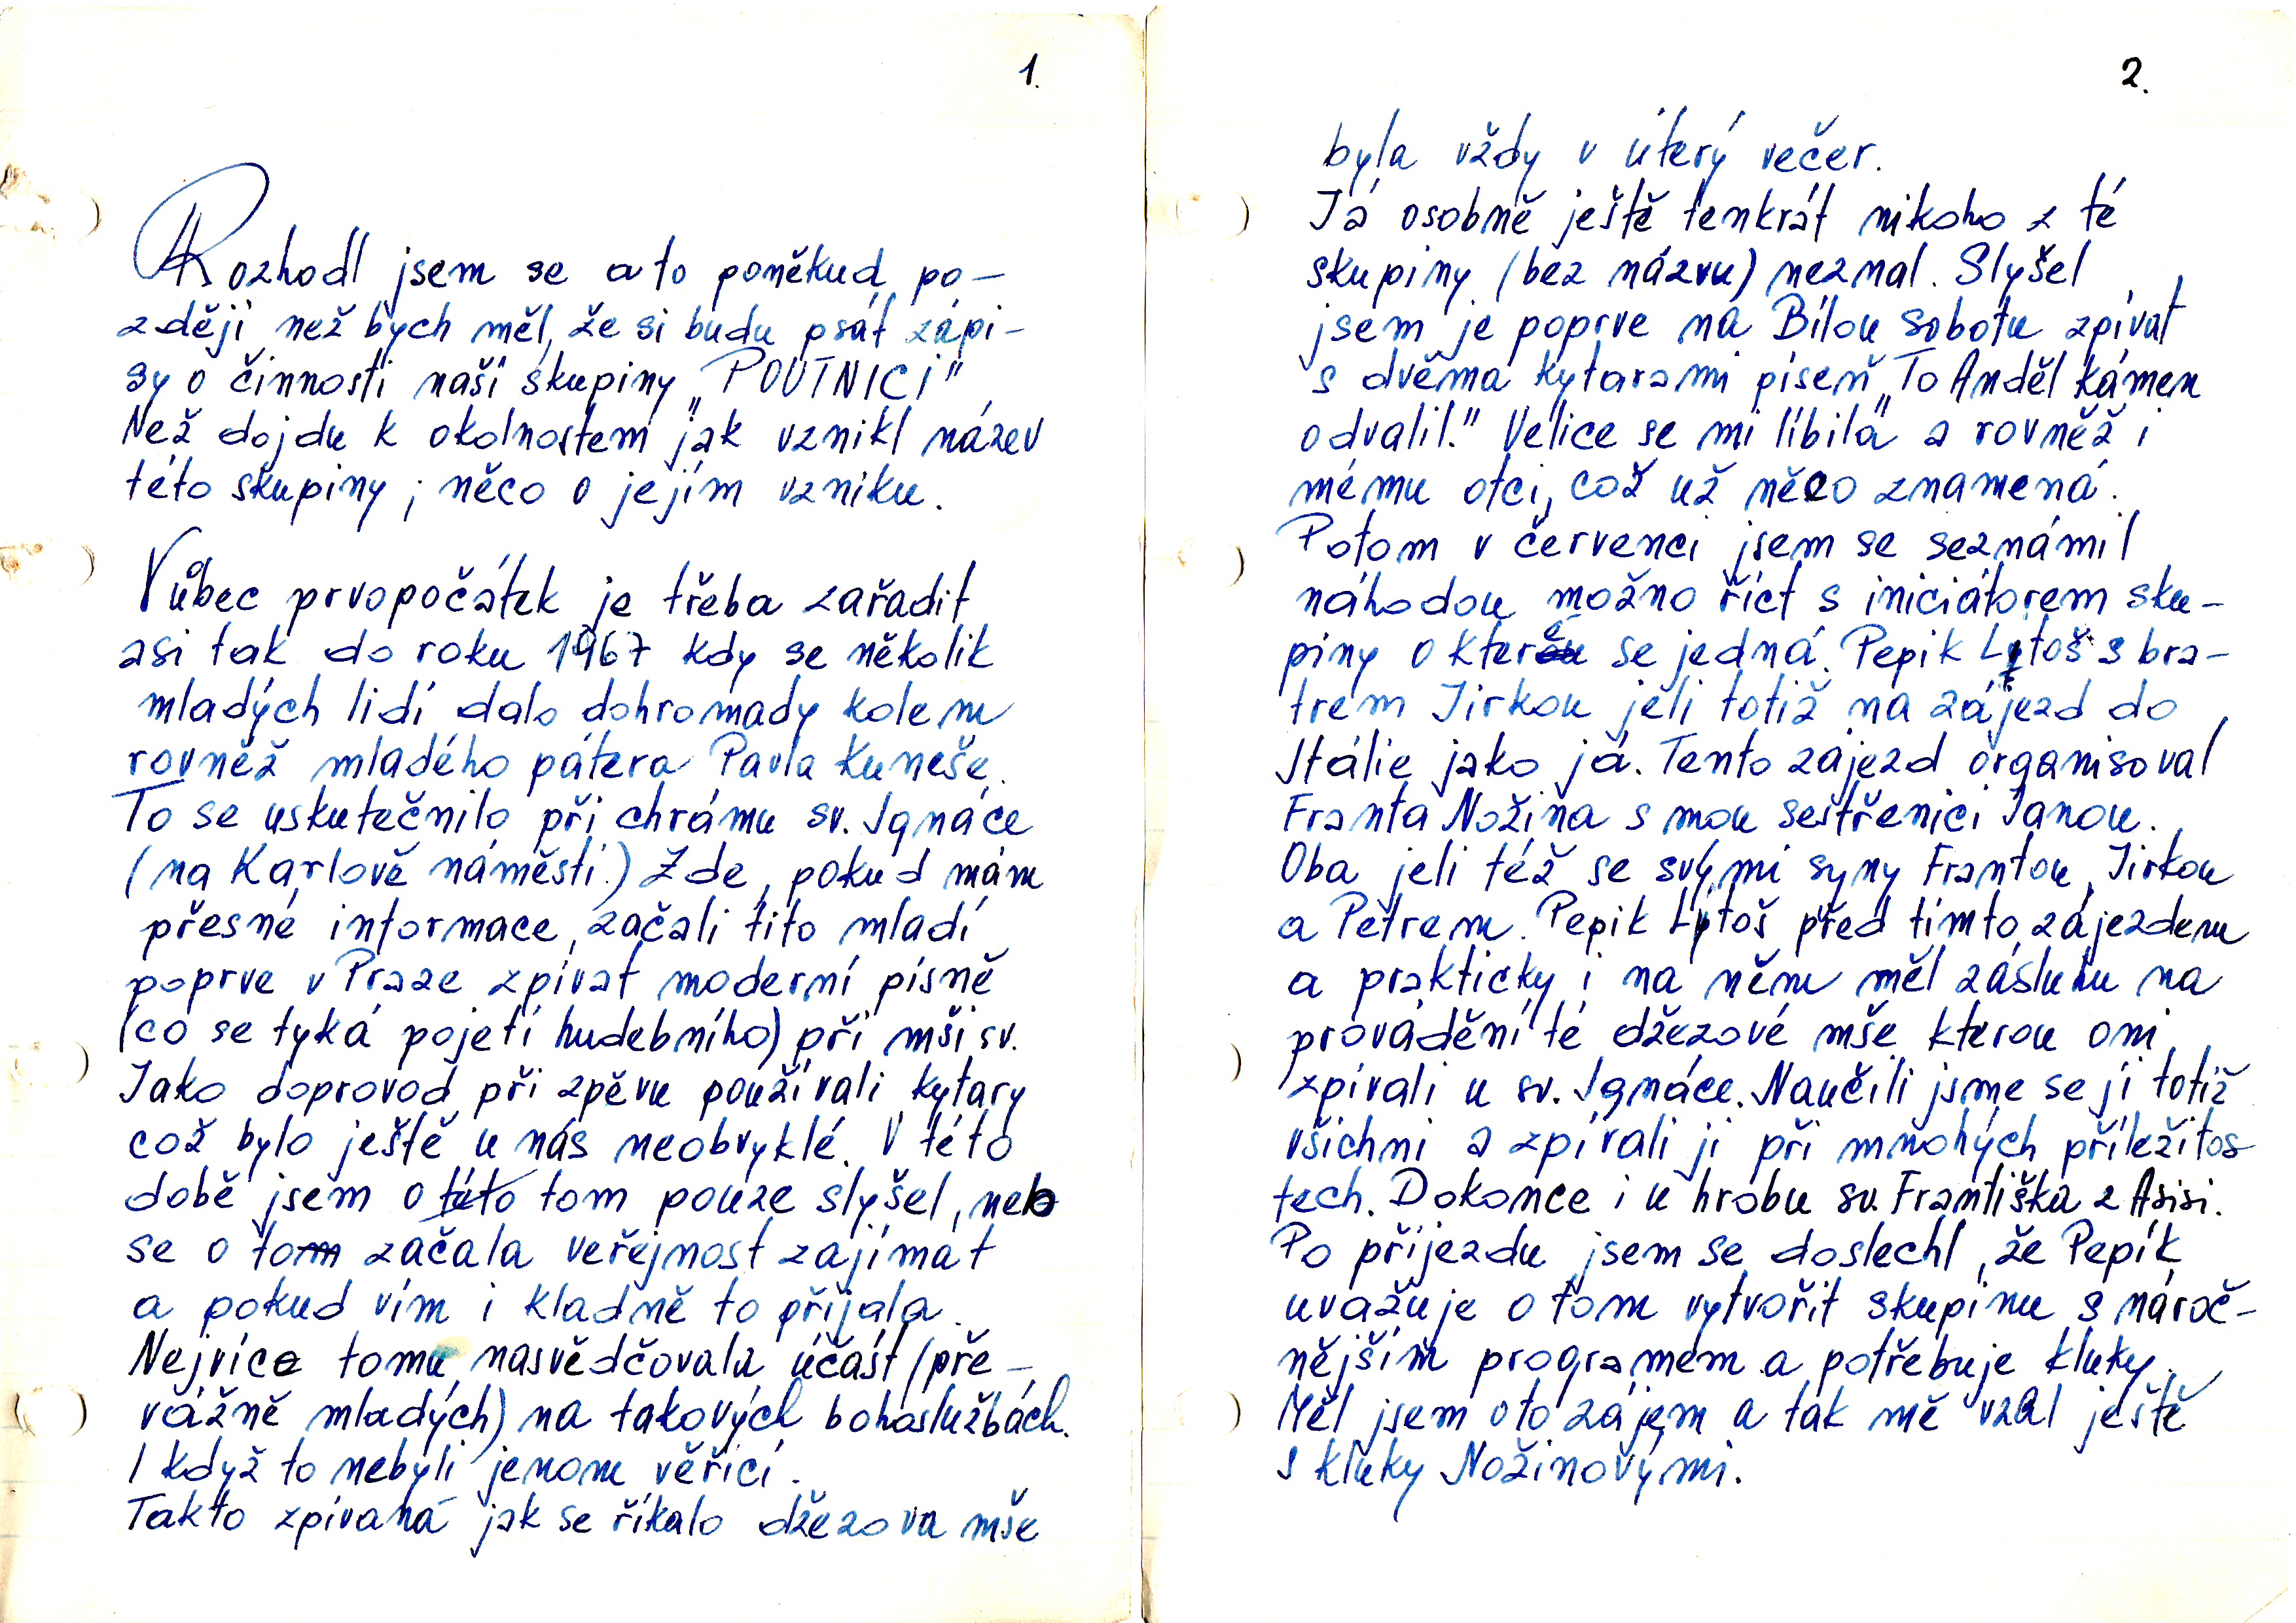 1.
Rozhodl jsem se a to poněkud po-
zději než bych měl, že si budu psát zápi-
sy o činnosti naší skupiny „POUTNÍCI"
Než dojdu k okolnostem jak vznikl název
této skupiny; něco o jejím vzniku.
Vůbec prvopočátek je třeba zařadit
asi tak do roku 1967 kdy se několik
mladých lidí dalo dohromady kolem
rovněž mladého pátera Pavla Kuneše.
To se uskutečnilo při chrámu sv. Ignáce
(na Karlově náměstí.) Zde, pokud mám
přesné informace, začali tito mladí
poprve v Praze zpívat moderní písně
(co se týká pojetí hudebního) při mši sv.
Jako doprovod při zpěvu používali kytary
což bylo ještě u nás neobvyklé. V této
době jsem o této tom pouze slyšel, neb
se o tom začala veřejnost zajímat
a pokud vím i kladně to přijala.
Nejvíce tomu nasvědčovala účast (pře-
vážně mladých) na takových bohoslužbách.
I když to nebyli jenom věřící.
Takto zpívaná jak se říkalo džezova mše
2.
byla vždy v úterý večer.
Já osobně ještě tenkrát nikoho z té
skupiny (bez názvu) neznal. Slyšel
jsem je poprve na Bílou sobotu zpívat
s dvěma kytarami píseň „To Anděl kámen
odvalil." Velice se mi líbila a rovněž i
mému otci, což už něco znamená.
Potom v červenci jsem se seznámil
náhodou možno říct s iniciátorem sku-
piny o které se jedná. Pepik Lytoš s bra-
trem Jirkou jeli totiž na zájezd do
Itálie jako já. Tento zájezd organisoval
Franta Nožina s mou sestřenicí Janou.
Oba jeli též se svými syny Frantou, Jirkou
a Petrem. Pepik Lytoš před tímto zájezdem
a prakticky i na něm měl zásluhu na
provádění té džezové mše kterou oni
zpívali u sv. Ignáce. Naučili jsme se jí totiž
všichni a zpívali ji při mnohých příležitos-
tech. Dokonce i u hrobu sv. Františka z Asisi.
Po příjezdu jsem se doslechl, že Pepík
uvažuje o tom vytvořit skupinu s nároč-
nějším programem a potřebuje kluky.
Měl jsem o to zájem a tak mě vzal ještě
s kluky Nožinovými.